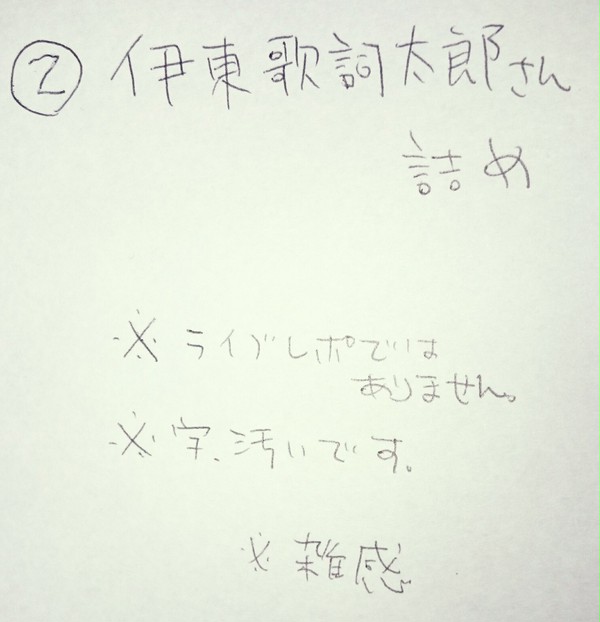 ② 伊東歌詞太郎さん
詰め
※ライブレポでは
ありません。
※字、汚いです。
※雑感